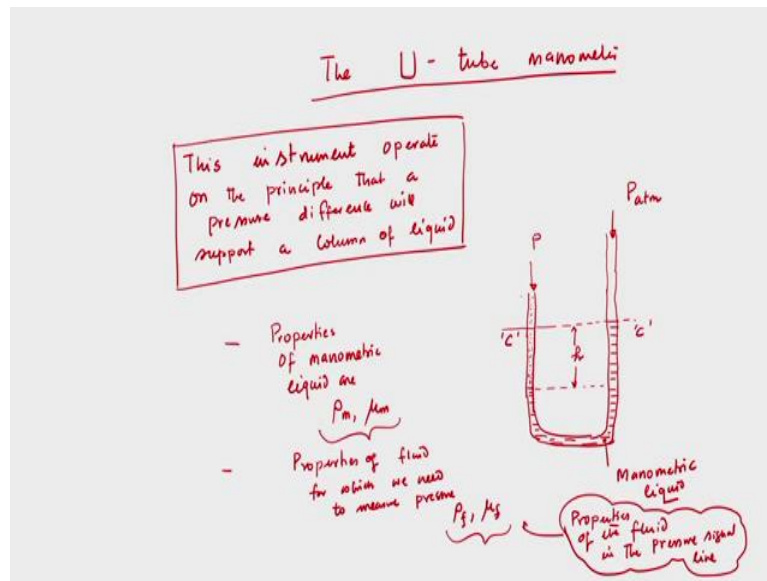 The U-tube manometer
This instrument operate
on the principle that a
pressure difference will
support a column of liquid
Patm
P
'c' 'c'
h
- Properties
of manometric
liquid are
ρm, μm
Manometric
liquid
- Properties of fluid
for which we need
to measure pressure
ρf, μf
Properties
of the fluid
in the pressure signal
line